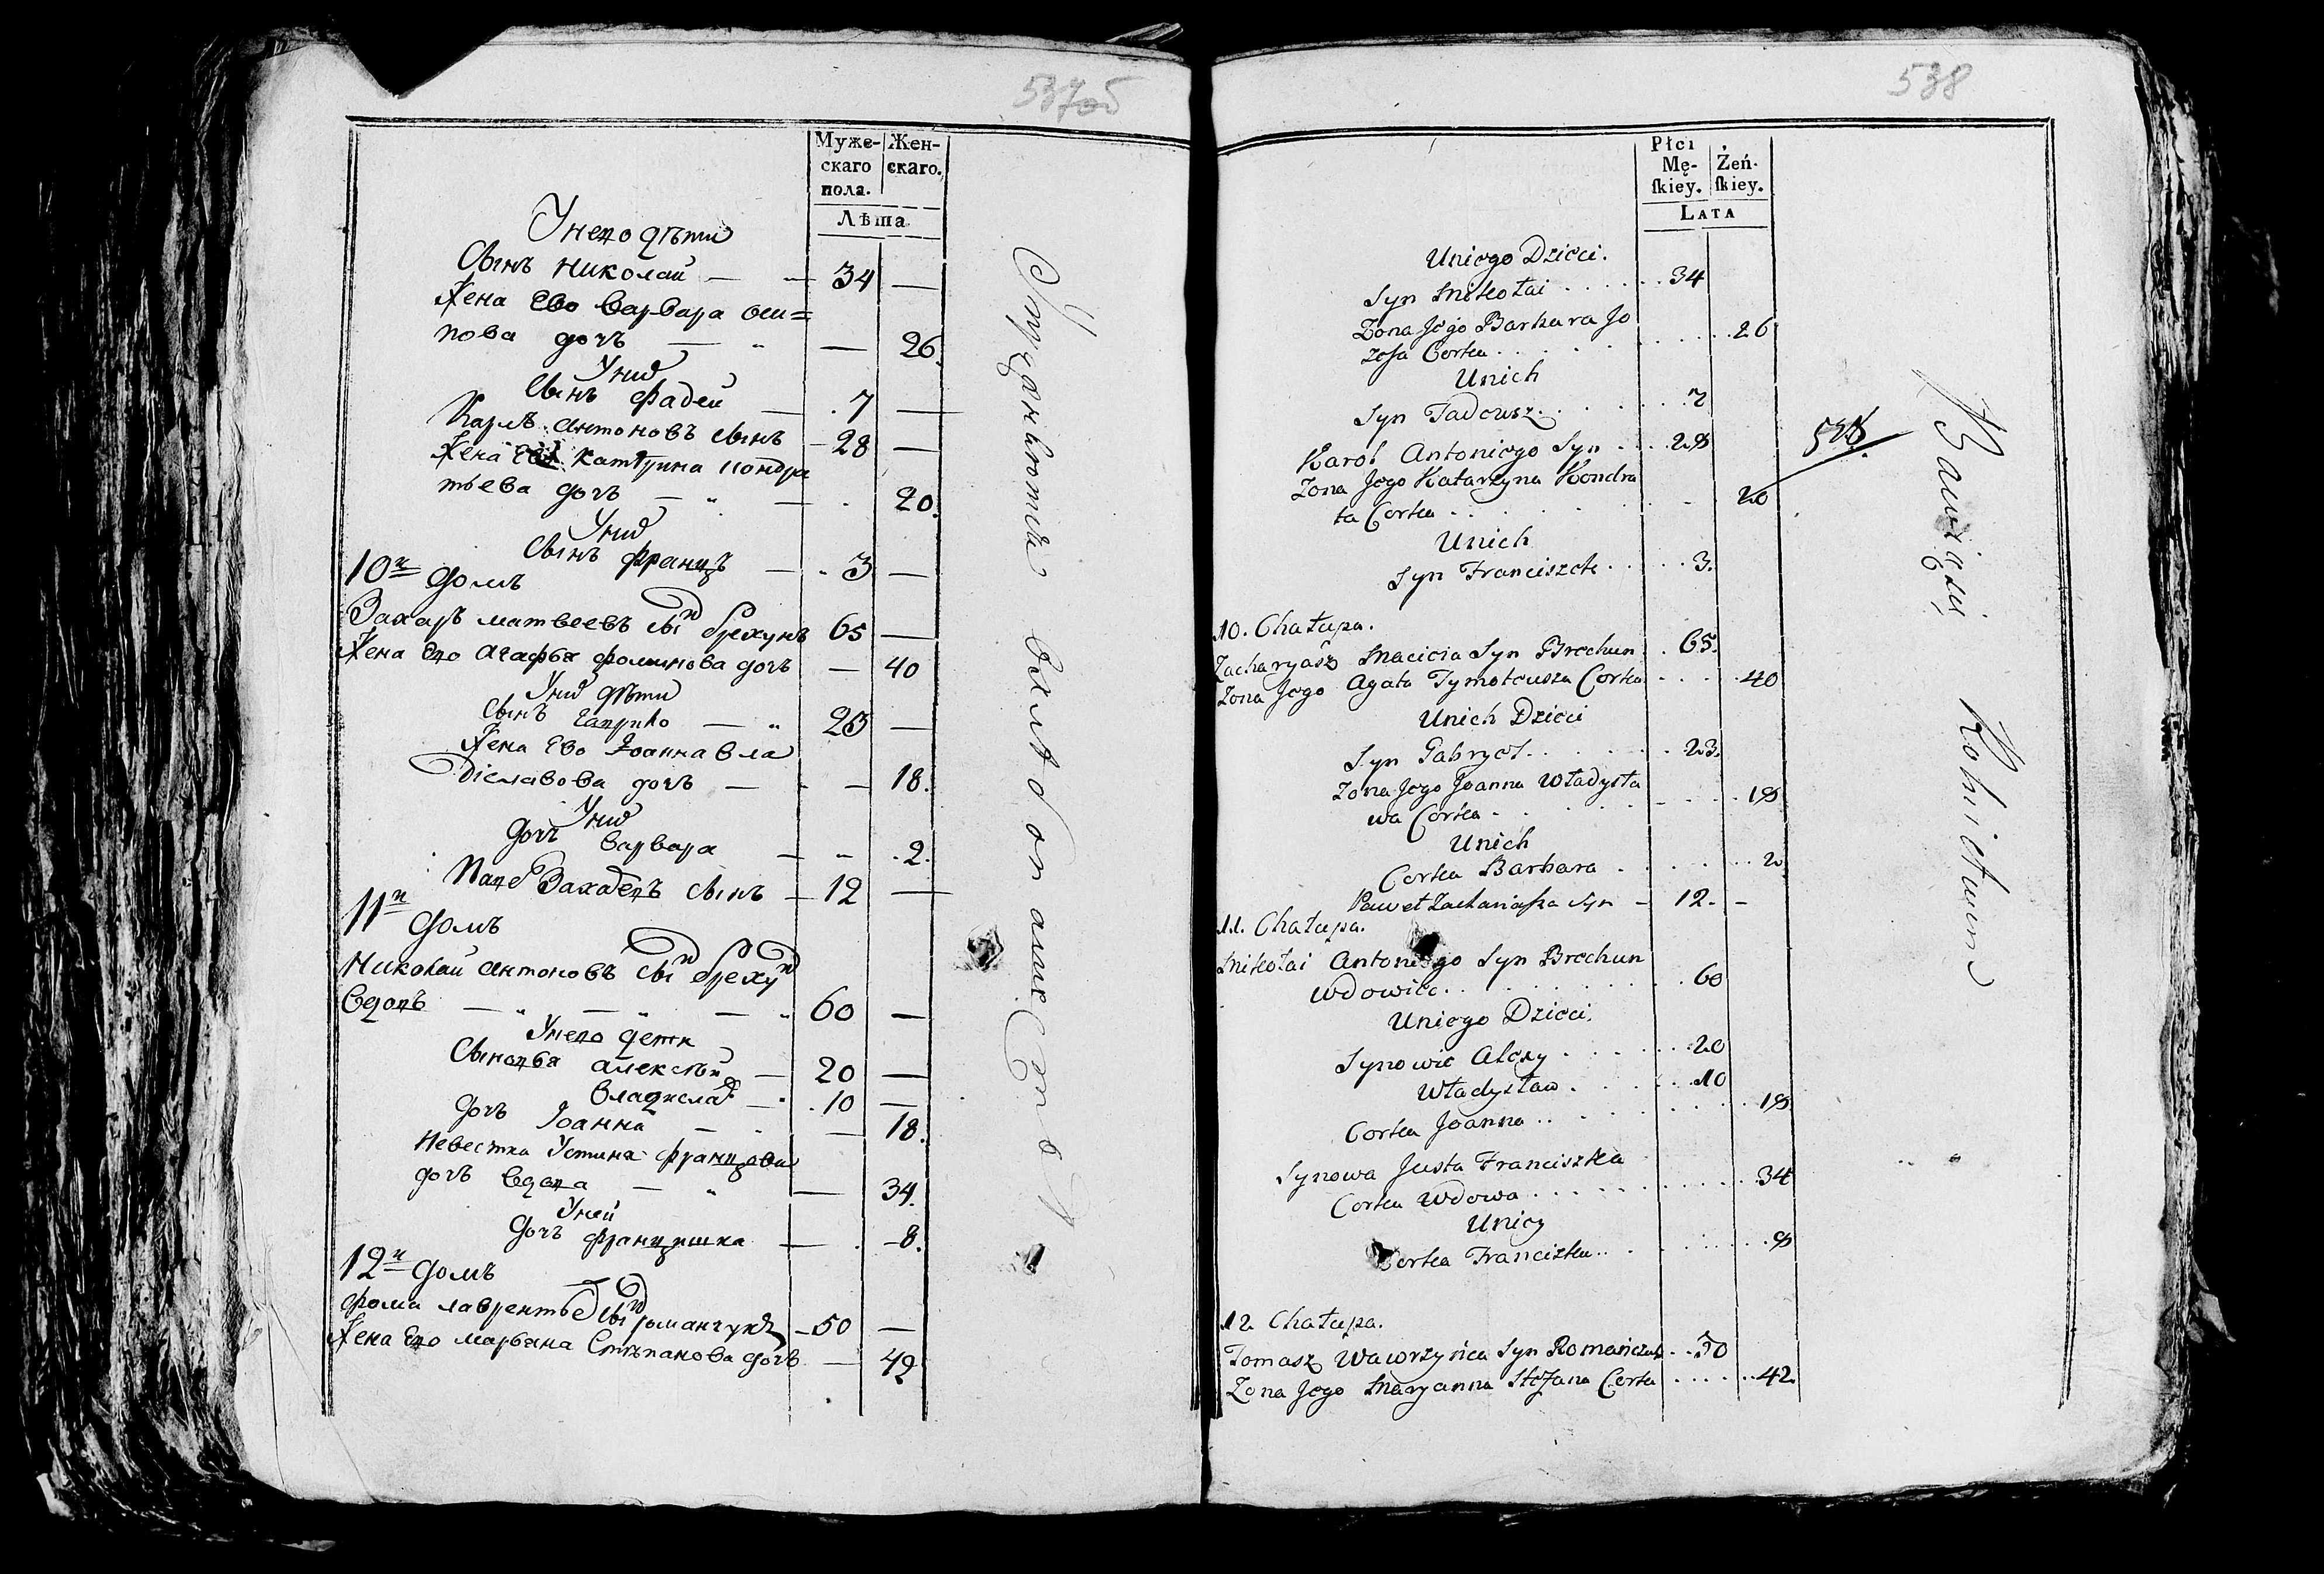 537об
Муже-
скаго
пола.
Жен-
скаго.
Лѣта
Унего дѣти
Сынъ Николай — 34 —
Жена Ево варвара оси=
пова дочъ — — 26.
Уних
Сынъ Фадей — 7 —
Карлъ антоновъ сынъ — 28 —
Жена Ево Катерина кондра
тьева дочъ — 20.
Уних
Сынъ францъ — 3 —
10й домъ
Захаръ матвеевъ сын брехунъ 65 —
Жена Его Агафья дочъ — 40
Уних дѣти
Сынъ Гаврило — 23 —
Жена Ево Іоанна вла
діславова дочъ — — 18.
Уних
дочъ варвара — 2.
сынъ — 12 —
11й домъ
Николай антоновъ сын брехун
вдовъ — 60 —
Унего дети
Сыновья алексѣй — 20 —
владислав — 10 —
дочъ Іоанна — 18.
Невестка Устина францова
дочъ вдова — 34.
Уней
дочъ францишка — 8.
12й домъ
фома лаврентьев сын романчукъ — 50 —
Жена Его марьяна Степанова дочъ — 42
538
Płci
Mę-
ſkiey.
Żeń-
ſkiey.
LATA
Uniego Dzieci.
Syn Mikołai . . . . . . 34
Zona Jego Barbara Jo
zefa Corka . . . . . . 26
Unich
Syn Tadeusz . . . . . . 7
Karol Antoniego Syn . . . 28
Zona Jego Katarzyna Kondra
ta Corka . . . . . . 20
Unich
Syn Franciszek . . . . . 3.
10. Chałupa.
Zacharyasz Macieia Syn Brechun . 65.
Zona Jego Agata Tymoteusza Corka . . . . 40
Unich Dzieci
Syn Gabryel . . . . . . 23.
Zona Jego Joanna Władysła
wa Corka . . . . . . 18
Unich
Corka Barbara . . . . . 2
Paweł Zachariasza Syn — 12. —
11. Chałupa.
Mikołai Antoniego Syn Brechun
Wdowiec . . . . . . . 60
Uniego Dzieci.
Synowie Alexy . . . . . 20
Władysław . . . . . 10
Corka Joanna . . . . . . 18
Synowa Justa Franciszka
Corka Wdowa . . . . . . 34
Uniey
Corka Franciszka . . . . . 8
12 Chałupa.
Tomasz Wawrzyńca Syn Romańczuk . . 50
Zona Jego Maryanna Stefana Corka . . . . . 42